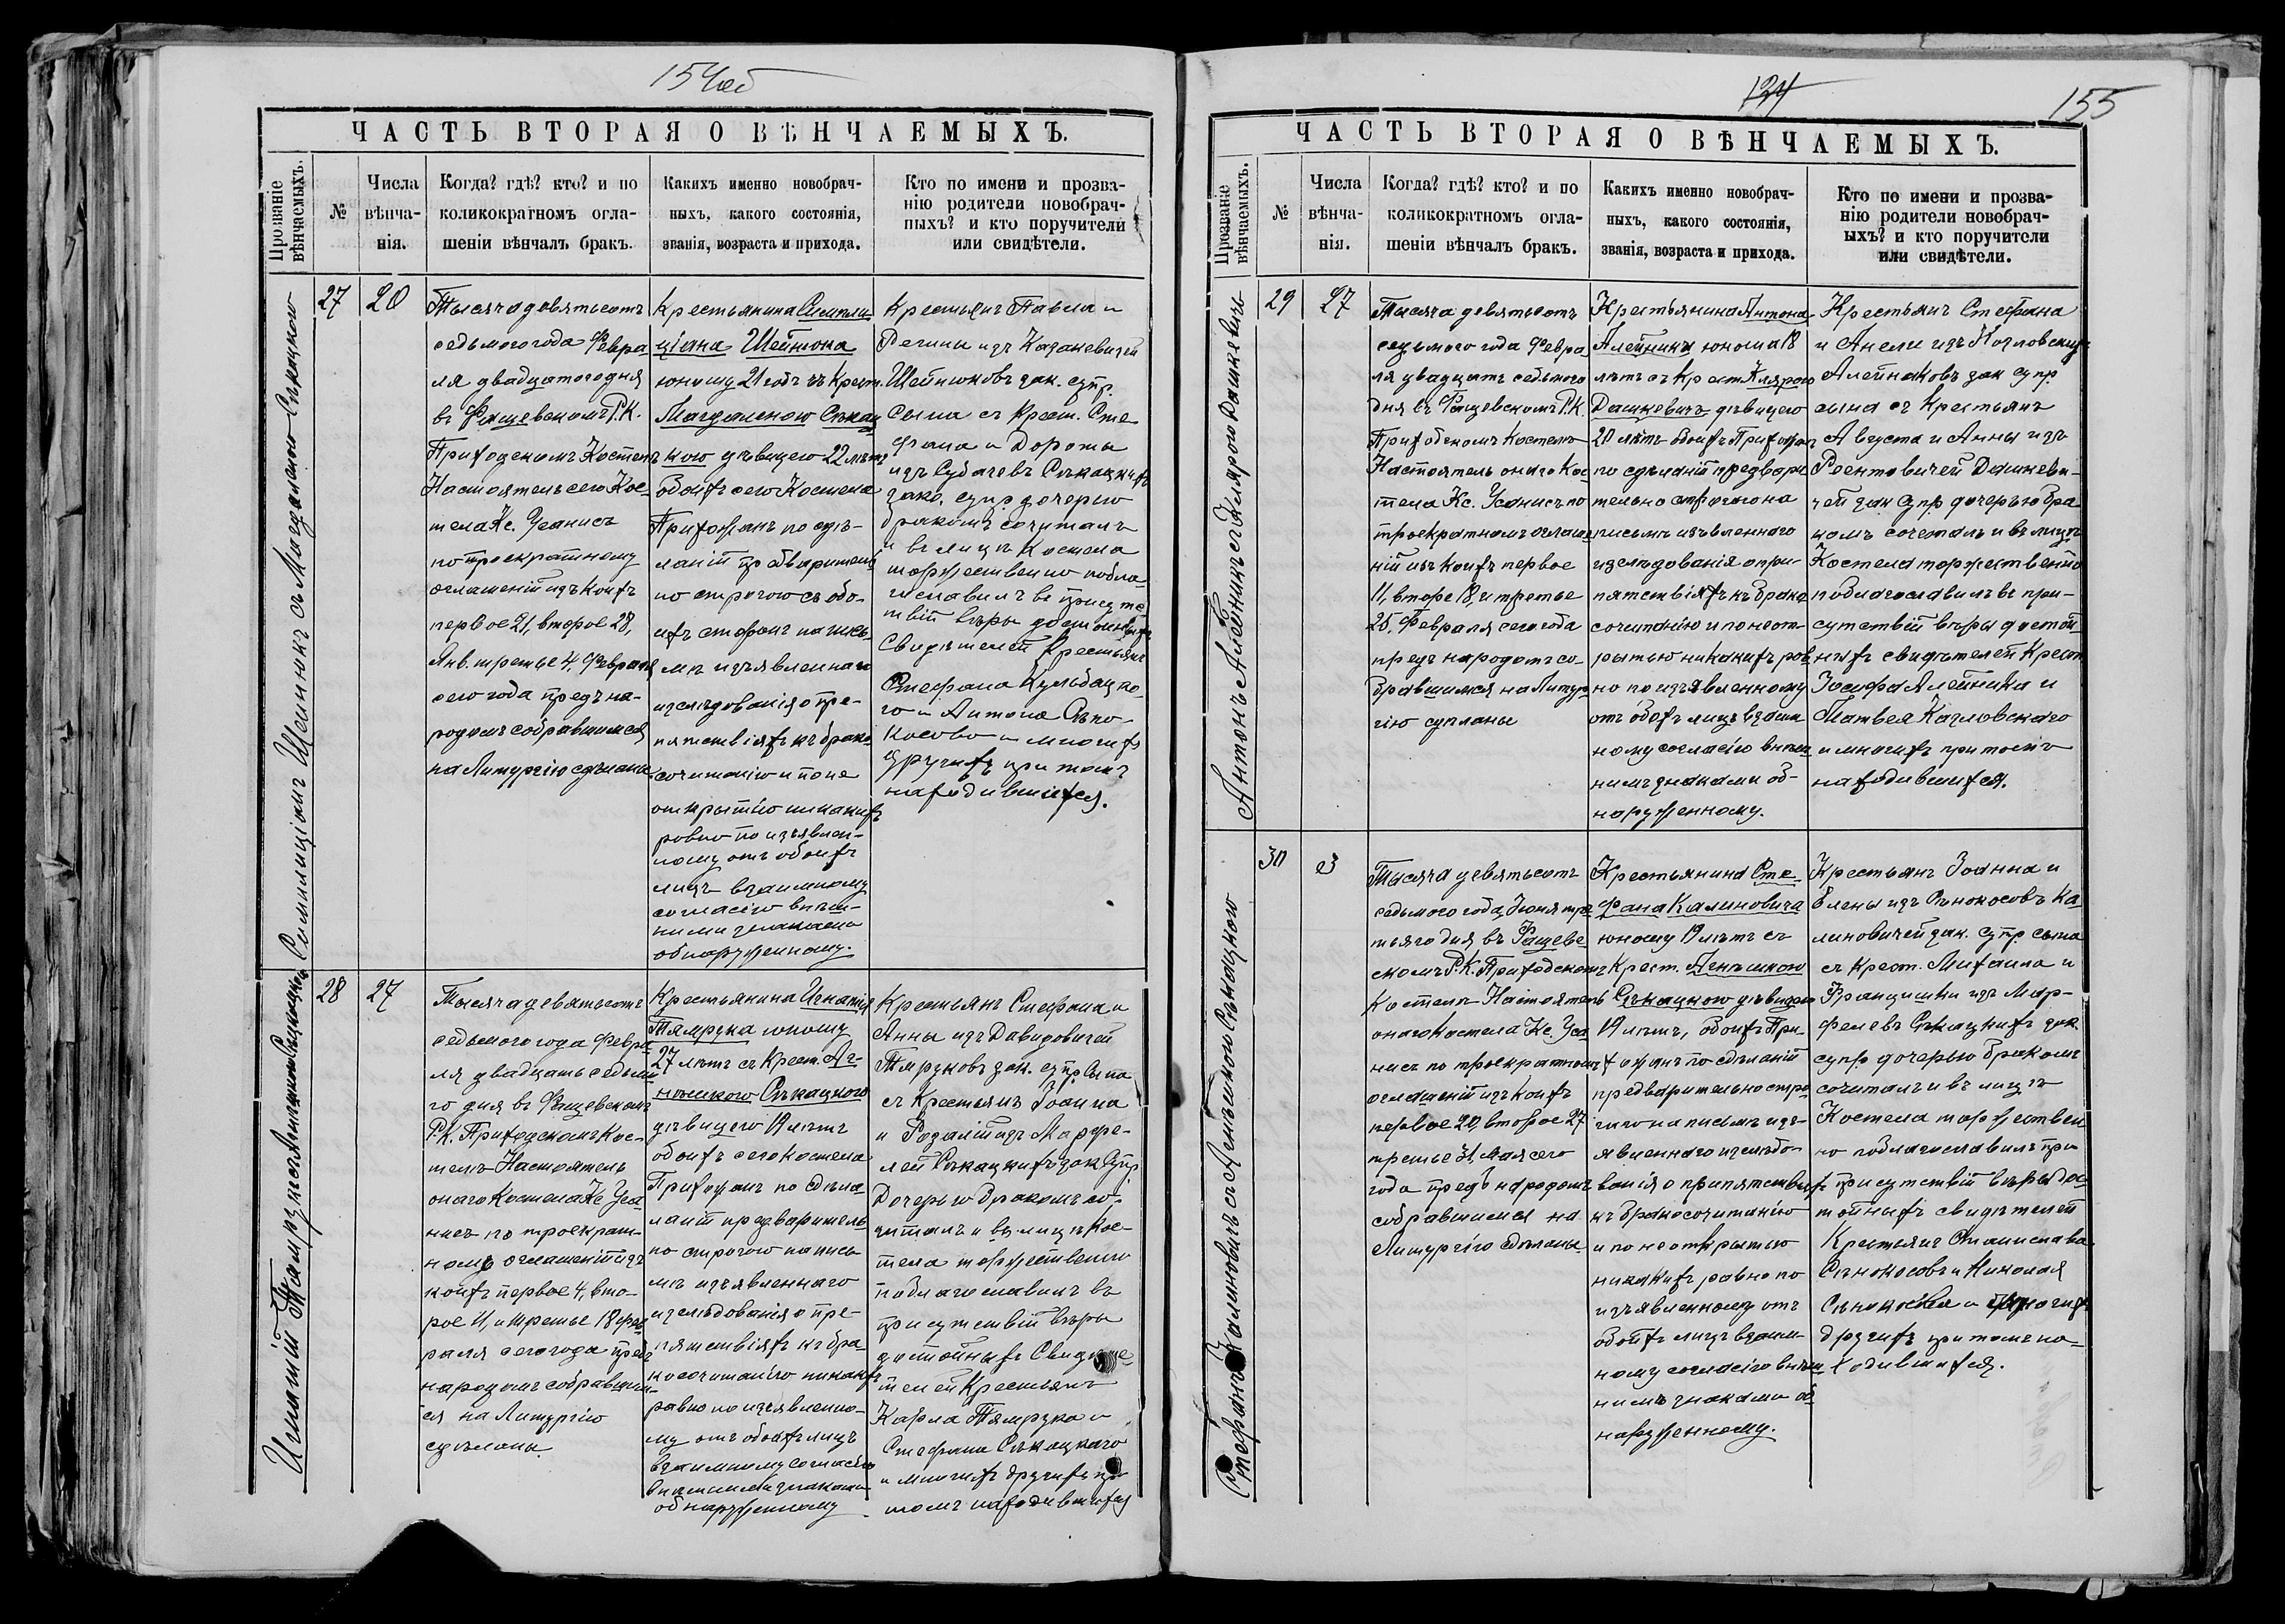 154 об
ЧАСТЬ ВТОРАЯ О ВѢНЧАЕМЫХЪ.
Прозваніе вѣнчаемыхъ.
№
Числа вѣнча-
нія.
Когда? гдѣ? кто? и по
коликократномъ огла-
шеніи вѣнчалъ бракъ.
Какихъ именно новобрач-
ныхъ, какого состоянія,
званія, возраста и прихода.
Кто по имени и прозва-
нію родители новобрач-
ныхъ? и кто поручители
или свидѣтели.
27
20
Тысяча девятьсотъ
седьмого года Февра
ля двадцатого дня
въ Фащевскомъ Р.К.
Приходскомъ Костелѣ
Настоятель сего Кос-
тела Кс. Усанисъ
по троекратному
оглашенію изъ коихъ
первое 21, второе 28,
Янв. третье 4, Февраля
сего года предъ на-
родомъ собравшимся
на Литургію сдѣланы
Крестьянина Симпли
ціана Шейнюка
юношу 21 годъ съ Крест.
Магдаленою Сѣкац
кою дѣвицею 22 лѣтъ
обоихъ сего Костела
Прихожанъ по сдѣ-
ланіи предварительно
но строгого съ обо-
ихъ сторонъ на пись-
мѣ изъявленнаго
изслѣдованія о пре-
пятствіяхъ къ брако-
сочитанію и по не
открытію никакихъ
ровно по изъявлен-
ному отъ обоихъ
лицъ взаимному
согласію внѣш-
ними знаками
обнаруженному.
Крестьянъ Павла и
Регины изъ Казакевичей
Шейнюковъ зак. супр.
Сына съ Крест. Сте
фана и Дороты
изъ Субачевъ Сѣкацкихъ
зако. супр. дочерью
бракомъ сочиталъ
и въ лицѣ Костела
торжественно побла-
гославилъ въ присутс
твіи вѣры достойныхъ
Свидѣтелей Крестьянъ
Стефана Кульбацко-
го и Антона Сѣно-
косово и многихъ
другихъ при томъ
находившихся.
Симплиціанъ Шейнюкъ съ Магдаленою Сѣкацкою
28
27
Тысяча девятьсотъ
седьмого года Февра
ля двадцать седьма
го дня въ Фащевскомъ
Р.К. Приходскомъ Кос-
телѣ Настоятель
онаго Костела Кс Уса
нисъ по троекрат-
ному оглашенію изъ
коихъ первое 4, вто-
рое 11, и третье 18 фев
раля сего года предъ
народомъ собравшим-
ся на Литургію
сдѣланы.
Крестьянина Игнатія
Тямрука юношу
27 лѣтъ съ Крест. Аг-
нѣшкою Сѣкацкою
дѣвицею 19 лѣтъ
обоихъ сего костела
Прихожанъ по сдѣла
ланіи предваритель
но строгого на пись
мѣ изъявленнаго
изслѣдованія о пре-
пятствіяхъ къ бра-
косочитанію никакихъ
равно по изъявленно-
му отъ обоихъ лицъ
взаимному согласію
внѣшними знаками
обнаруженному
Крестьянъ Стефана и
Анны изъ Давидовичей
Тямруковъ зак. супр. Сына
съ Крестьянъ Іоанна
и Розаліи изъ Марфе-
лей Сѣкацкихъ зак. Супр.
Дочерью бракомъ со-
читалъ и въ лицѣ Кос-
тела торжественно
поблагославилъ въ
присутствіи вѣры
достойныхъ Свидѣте-
телей Крестьянъ
Карла Тямрука и
Стефана Сѣкацкаго
и многихъ другихъ при
томъ находившихся
Игнатій Тямрукъ съ Агнѣшкою Сѣкацкою
134
155
ЧАСТЬ ВТОРАЯ О ВѢНЧАЕМЫХЪ.
Прозваніе вѣнчаемыхъ.
№
Числа вѣнча-
нія.
Когда? гдѣ? кто? и по
коликократномъ огла-
шеніи вѣнчалъ бракъ.
Какихъ именно новобрач-
ныхъ, какого состоянія,
званія, возраста и прихода.
Кто по имени и прозва-
нію родители новобрач-
ыхъ? и кто поручители
или свидѣтели.
29
27
Тысяча девятьсотъ
седьмого года Февра
ля двадцать седьмого
дня въ Фащевскомъ Р.К.
Приходскомъ Костелѣ
Настоятель онаго Кос
тела Кс. Усанисъ по
троекратномъ оглаше
ніи изъ коихъ первое
11, второе 18, и третье
25, Февраля сего года
предъ народомъ со-
бравшимся на Литур
гію сдѣланы
Крестьянина Антона
Алейника юноша 18
лѣтъ съ Крест. Клярою
Дашкевичъ дѣвицею
20 лѣтъ обоихъ Прихожан
по сдѣланіи предвари
тельно строгого на
письмѣ изъявленнаго
изслѣдованія о при-
пятствіяхъ къ брако
сочитанію и по неот-
рытью никакихъ ров
но по изъявленному
отъ обоихъ лицъ взаим
ному согласію внѣш
нимъ знаками об-
наруженному.
Крестьянъ Стефана
и Анели изъ Козловскихъ
Алейниковъ зак супр
сына съ Крестьянъ
Августа и Анны изъ
Роентовичей Дашкеви-
чей зак Супр дочерью бра
комъ сочеталъ и въ лицѣ
Костела торжественно
поблагославилъ въ при-
сутствіи вѣры достой
ныхъ свидѣтелей Крест
Іосифа Алейника и
Матвея Козловскаго
и многихъ при томъ
находившихся.
Антонъ Алейникъ съ Клярою Дашкевичъ
30
3
Тысяча девятьсотъ
седьмого года Іюня тре
тьяго дня въ Фащевс
скомъ Р.К. Приходскомъ
Костелѣ Настоятель
онаго Костела Кс. Уса
нисъ по троекратномъ
оглашеніи изъ коихъ
первое 20, второе 27
третье 31, Мая сего
года предъ народомъ
собравшимся на
Литургію сдѣланы
Крестьянина Сте-
фана Калиновича
юношу 19 лѣтъ съ
Крест. Агнѣшкою
Сѣкацкою дѣвицею
19 лѣтъ, обоихъ При
хожанъ по сдѣланіи
предварительно стро
гого на письмѣ изъ-
явленнаго изслѣдо-
ванія о припятствіях
къ бракосочитанію
и по неоткрытью
никакихъ равно по
изъявленному отъ
обоихъ лицъ взаим-
ному согласію внѣш
нимъ знаками об
наруженному.
Крестьянъ Іоанна и
Елены изъ Сѣнокосовъ Ка
линовичей зак. супр. сына
съ Крест. Михаила и
Францишки изъ Мар-
фелевъ Сѣкацкихъ зак.
супр. дочерью бракомъ
сочиталъ и въ лицѣ
Костела торжествен
но поблагославилъ при
присутствіи вѣры дос
тойныхъ свидѣтелей
Крестьянъ Станислава
Сѣнокосовъ и Николая
Сѣнокосѣвя и многихъ
другихъ при томъ на-
ходившихся.
Стефанъ Калиновичъ съ Агнѣшкою Сѣкацкою